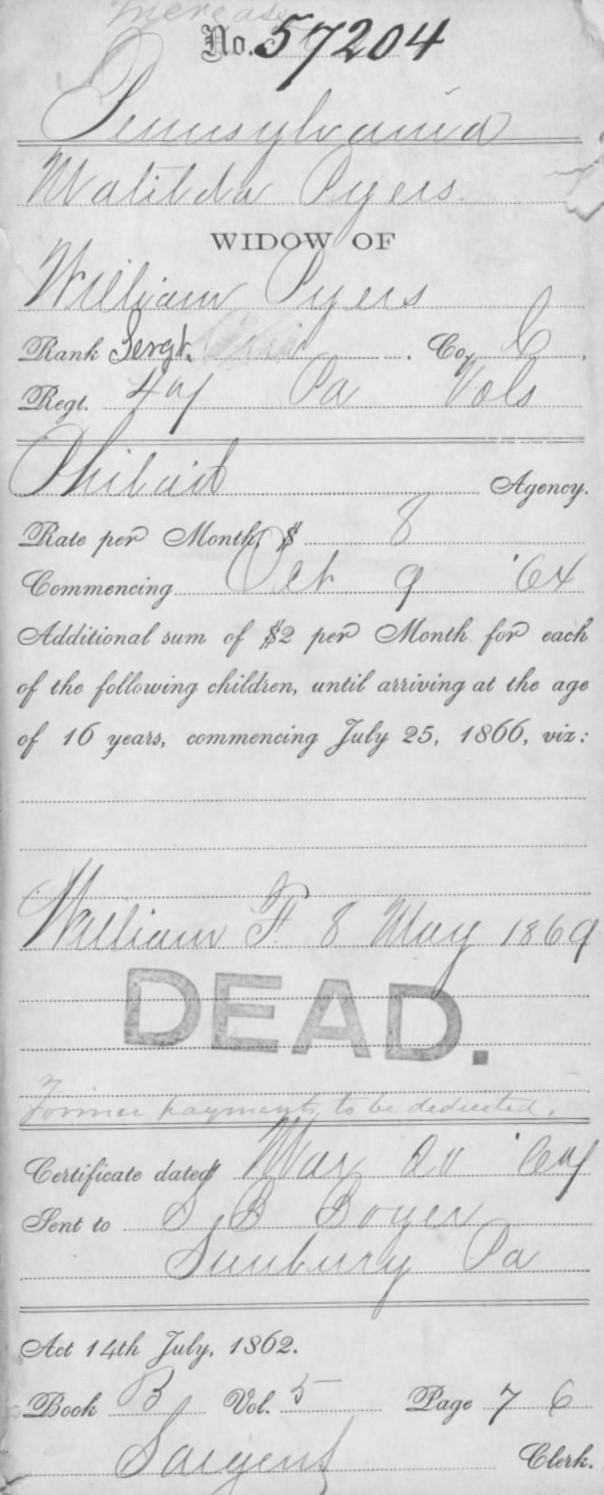 Increase
No. 57204
Pennsylvania
Matilda Pyers
WIDOW OF
William Pyers
Rank Sergt. Co. C.
Regt. 47 Pa Vols
Philad Agency.
Rate per Month, $ 8
Commencing Oct 9 '64
Additional sum of $2 per Month for each
of the following children, until arriving at the age
of 16 years, commencing July 25, 1866, viz:
William F. 8 May 1869
DEAD.
Former payments to be deducted.
Certificate dated Mar 20 '67
Sent to S B Boyer
Sunbury Pa
Act 14th July, 1862.
Book B Vol. 5 Page 76
Sargent Clerk.